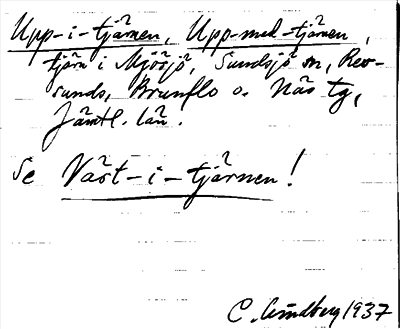 Upp-i-tjärnen, Upp-med-tjärnen,
tjärn i Mjösjö, Sundsjö sn, Rev-
sunds, Brunflo o. Näs tg,
Jämtl. län.
Se Väst-i-tjärnen!
C. Lindberg 1937